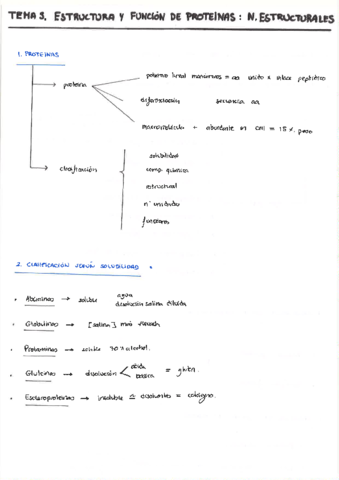 TEMA 3. ESTRUCTURA Y FUNCIÓN DE PROTEÍNAS: N. ESTRUCTURALES
1. PROTEÍNAS
proteína
polímero lineal monómeros = aa unido x enlace peptídico
diferenciación secuencia aa
macromolécula + abundante en cel = 15 % peso
clasificación
solubilidad
comp. química
estructural
nº unidades
funciones
2. CLASIFICACIÓN SEGÚN SOLUBILIDAD
• Albúminas → soluble agua
disolución salina diluida
• Globulinas → [salina] más
• Prolaminas → soluble 70% alcohol.
• Glutelinas → disolución ácida
básica = gluten.
• Escleroproteínas → insoluble disolventes = colágeno.